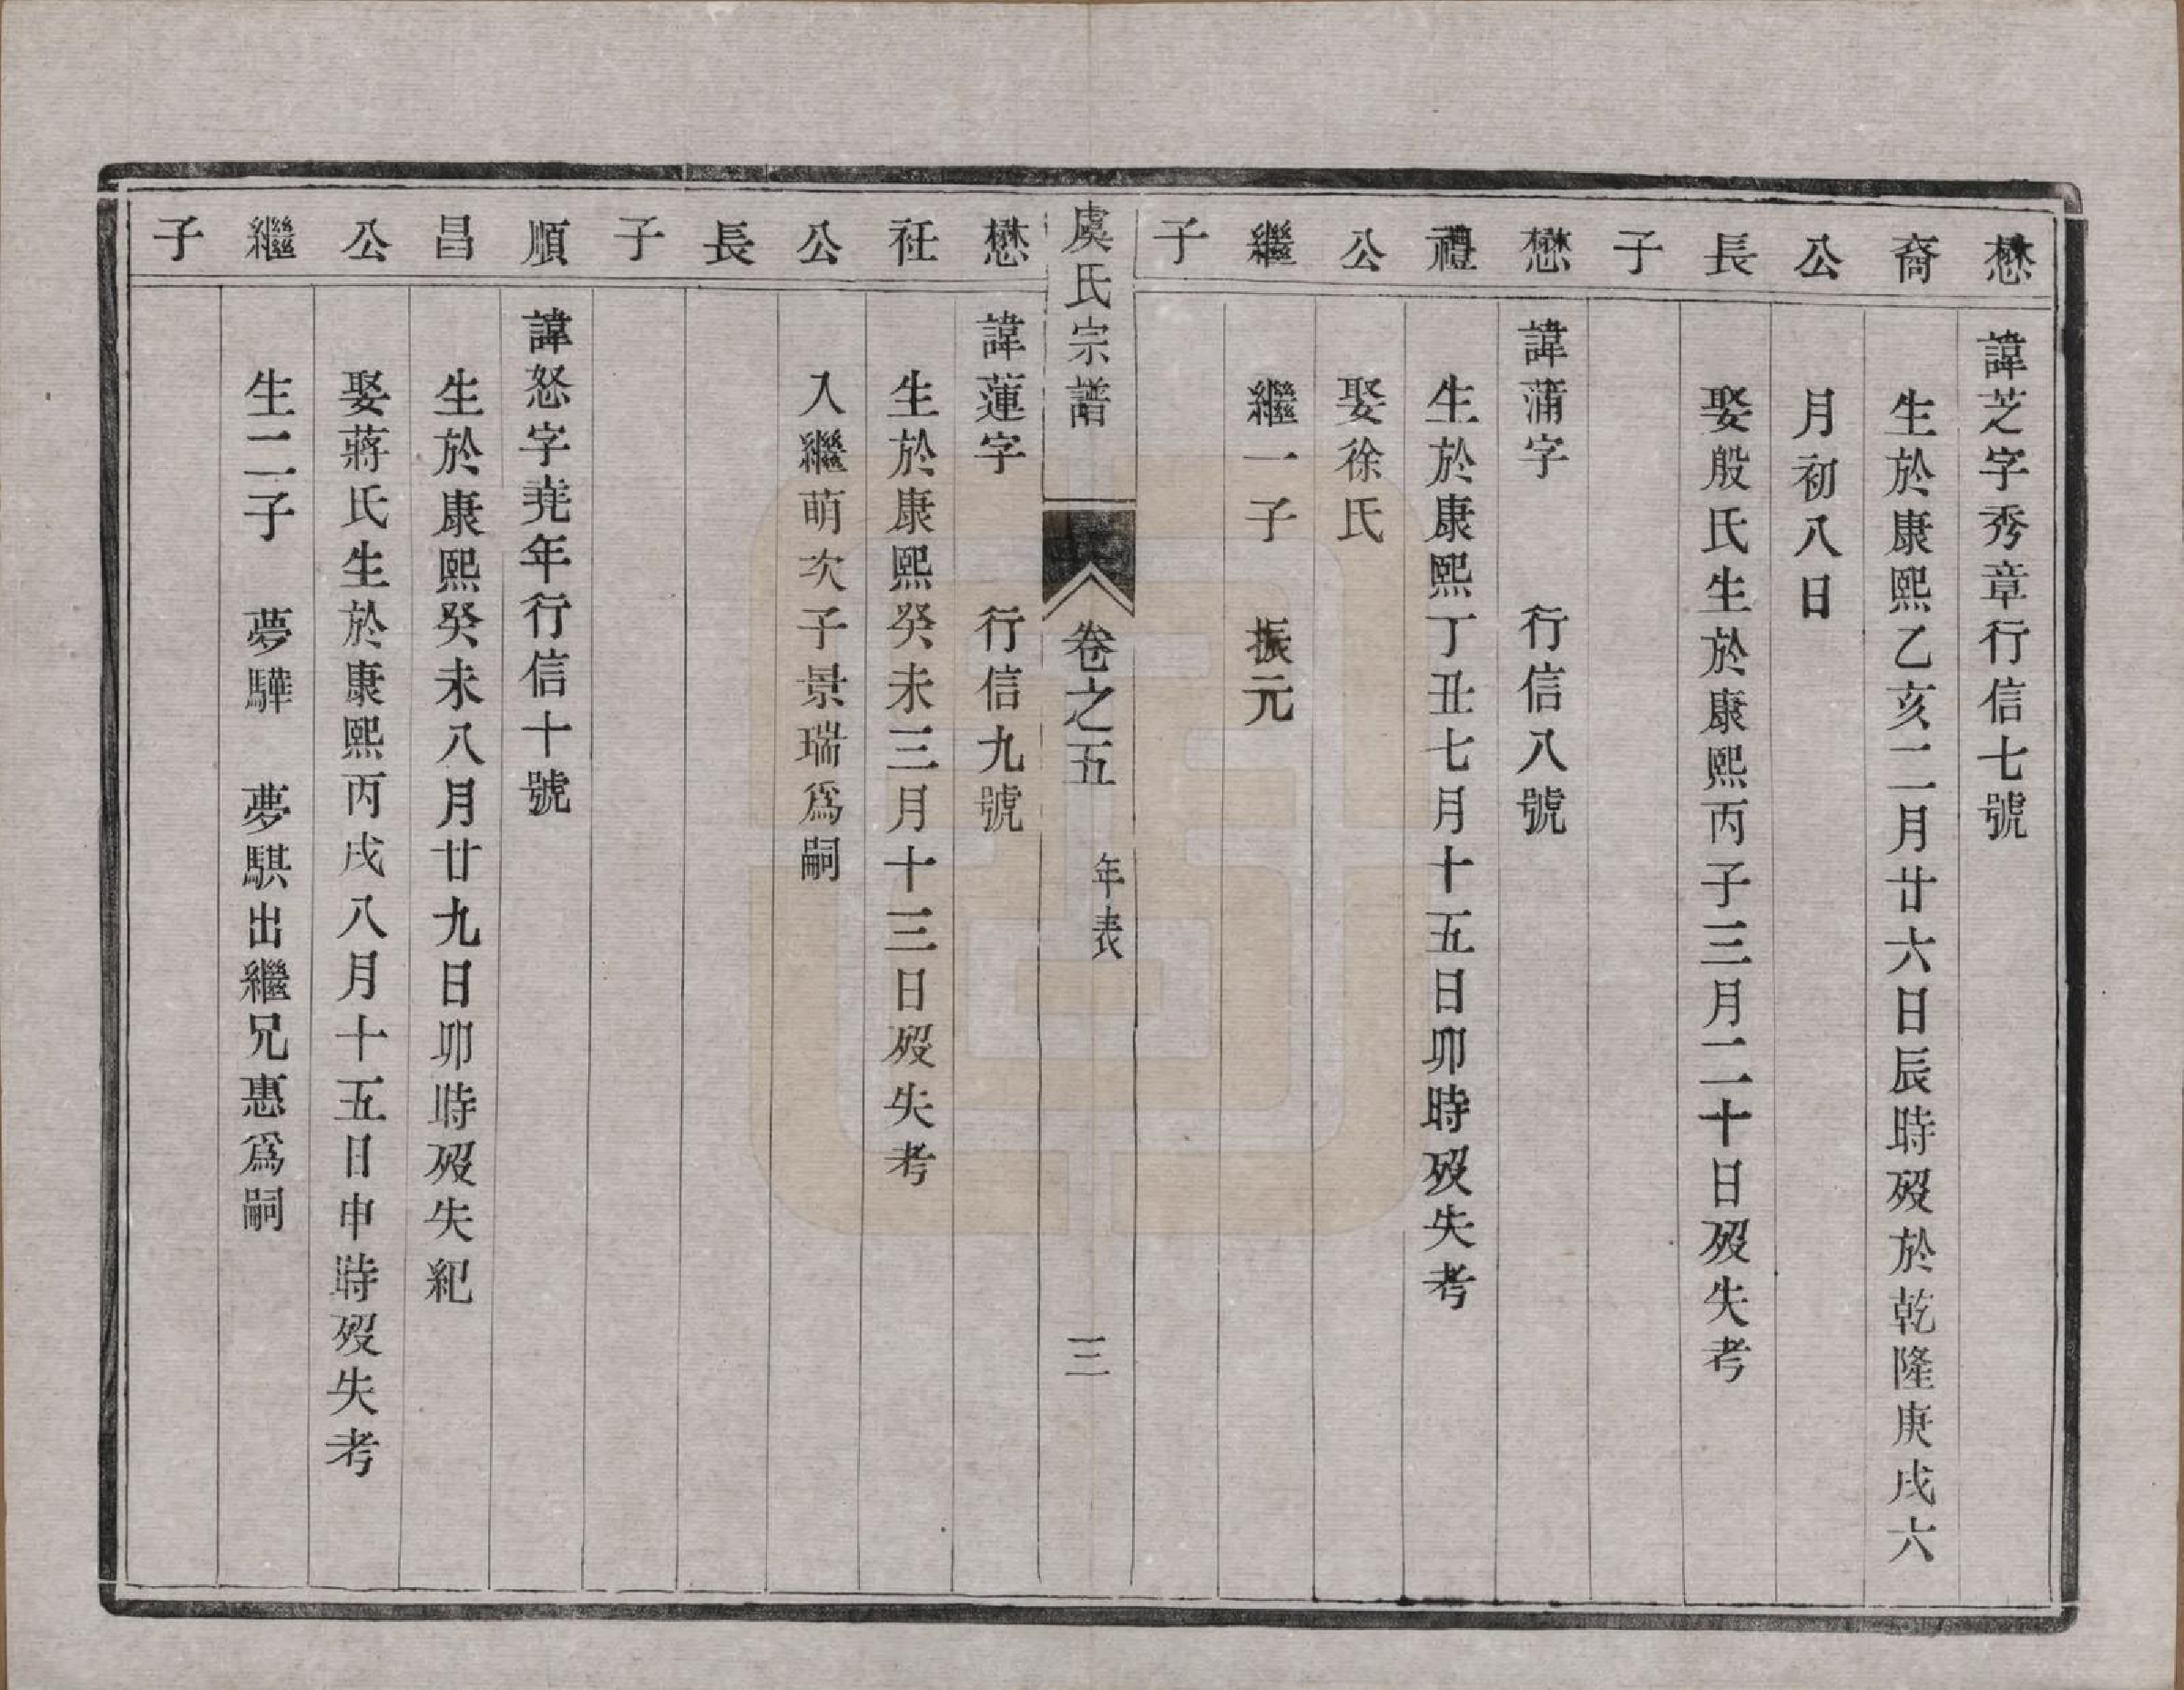 懋
諱芝字秀章行信七號
裔
生於康熙乙亥二月廿六日辰時歿於乾隆庚戌六
公
月初八日
長
娶殷氏生於康熙丙子三月二十日歿失考
子
懋
諱蒲字　行信八號
禮
生於康熙丁丑七月十五日卯時歿失考
公
娶徐氏
繼
繼一子　振元
子
虞氏宗譜　卷之五　年表　三
懋
諱蓮字　行信九號
社
生於康熙癸未三月十三日歿失考
公
入繼萌次子景瑞爲嗣
長
子
順
諱怒字堯年行信十號
昌
生於康熙癸未八月廿九日卯時歿失紀
公
娶蔣氏生於康熙丙戌八月十五日申時歿失考
繼
生二子　夢驊　夢騏出繼兄惠爲嗣
子